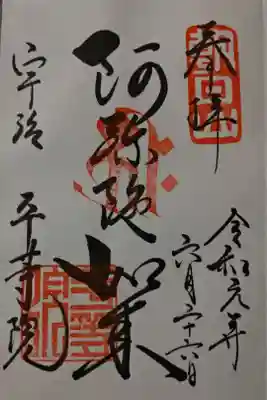 奉拝
令和元年
六月二十六日
阿弥陀如来
宇治
平等院